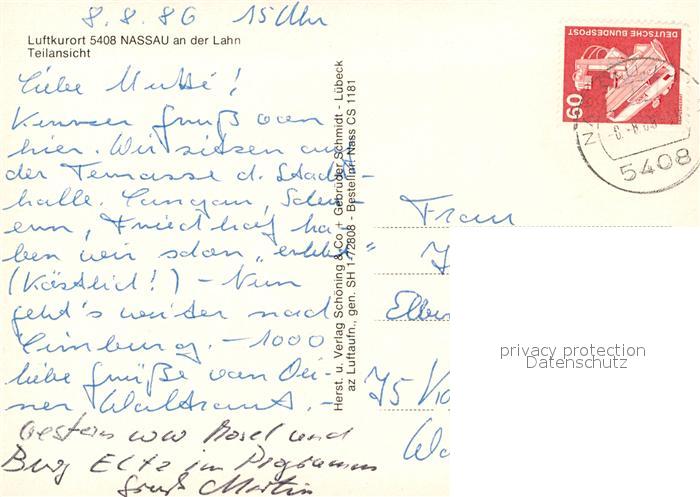 8.8.86 15 Uhr
Luftkurort 5408 NASSAU an der Lahn
Teilansicht
Liebe Mutti!
Kurzer Gruß von
hier. Wir sitzen auf
der Terrasse d. Stadt-
halle. Langau, Scheu-
ern, Friedhof ha-
ben wir schon „erlebt"
(Köstlich!) – Nun
geht's weiter nach
Limburg. – 1000
liebe Grüße von Dei-
ner Waltraut. –
Gestern war Mosel und
Burg Eltz im Programm
Gruß Martin
Herst. u. Verlag Schöning & Co + Gebrüder Schmidt - Lübeck
az Luftaufn., gen. SH 1-72808 - Bestellnr. Nass CS 1181
DEUTSCHE BUNDESPOST
60
5408
Frau
Elber
75
privacy protection
Datenschutz